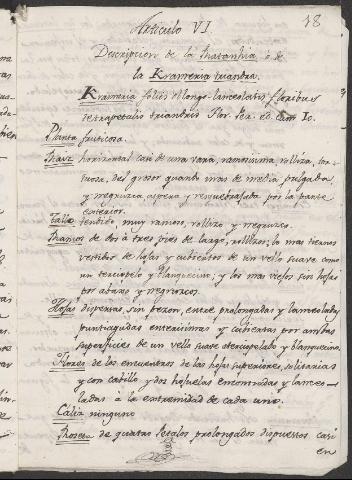 18
Articulo VI
Descripcion de la Ratanhia ó de
la Krameria triandra.
Krameria foliis oblongo-lanceolatis floribus
tetrapetalis triandris Flor. Per. ed. Ic.
Planta fruticosa.
Raiz horizontal casi de una vara, ramosisima, rolliza, tor-
tuosa, del grosor quando mas de media pulgada,
y negruzca, aspera y resquebrajada por la parte
exterior.
Tallo tendido, muy ramoso, rollizo y negruzco.
Ramos de dos à tres pies de largo, rollizos; los mas tiernos
vestidos de hojas y cubiertos de un vello suave como
un terciopelo y blanquecino; y los mas viejos sin hojas
por abaxo y negruzcos.
Hojas dispersas, sin pezon, entre prolongadas y lanceoladas,
puntiagudas enterisimas y cubiertas por ambas
superficies de un vello suave aterciopelado y blanquecino.
Flores de los encuentros de las hojas superiores, solitarias
y con cabillo, y dos hojuelas encontradas y lanceo-
ladas à la extremidad de cada uno.
Caliz ninguno
Roseta de quatro petalos prolongados dispuestos casi
en